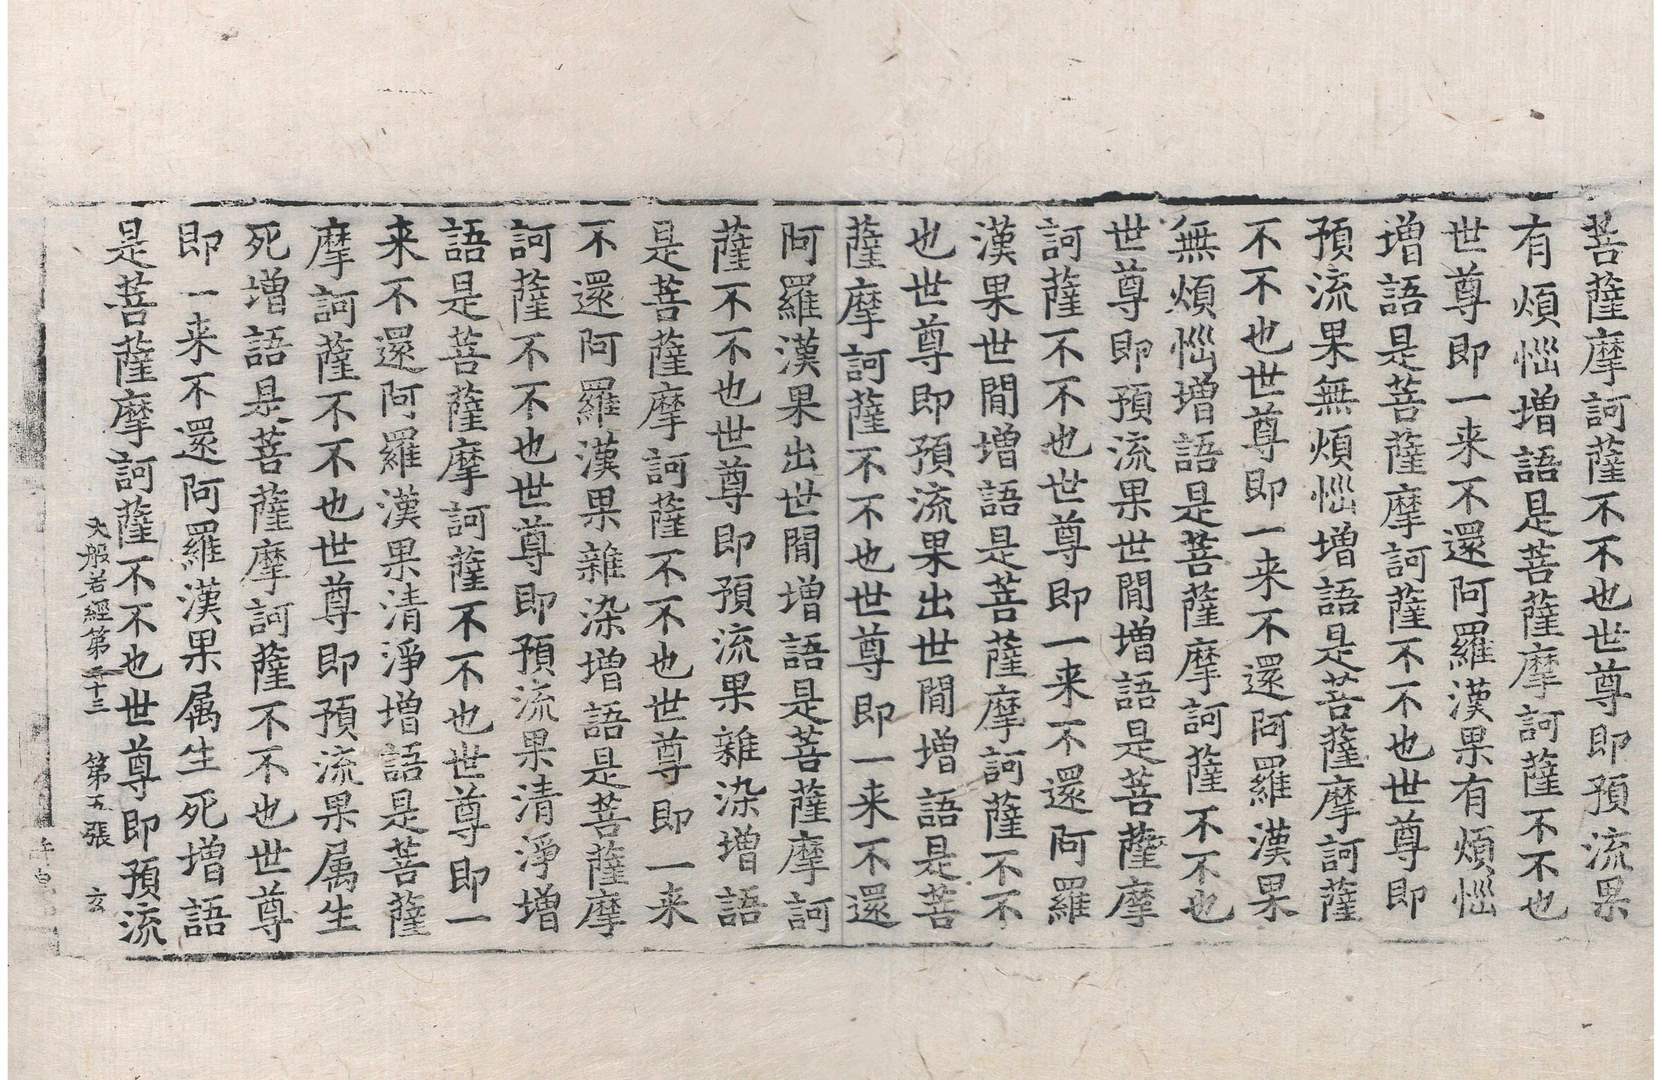 菩薩摩訶薩不不也世尊即預流果
有煩惱増語是菩薩摩訶薩不不也
世尊即一来不還阿羅漢果有煩惱
増語是菩薩摩訶薩不不也世尊即
預流果無煩惱増語是菩薩摩訶薩
不不也世尊即一来不還阿羅漢果
無煩惱増語是菩薩摩訶薩不不也
世尊即預流果世閒増語是菩薩摩
訶薩不不也世尊即一来不還阿羅
漢果世閒増語是菩薩摩訶薩不不
也世尊即預流果出世閒増語是菩
薩摩訶薩不不也世尊即一来不還
阿羅漢果出世閒増語是菩薩摩訶
薩不不也世尊即預流果雜染増語
是菩薩摩訶薩不不也世尊即一来
不還阿羅漢果雜染増語是菩薩摩
訶薩不不也世尊即預流果清淨増
語是菩薩摩訶薩不不也世尊即一
来不還阿羅漢果清淨増語是菩薩
摩訶薩不不也世尊即預流果属生
死増語是菩薩摩訶薩不不也世尊
即一来不還阿羅漢果属生死増語
是菩薩摩訶薩不不也世尊即預流
大般若經第三十三 第五張 玄